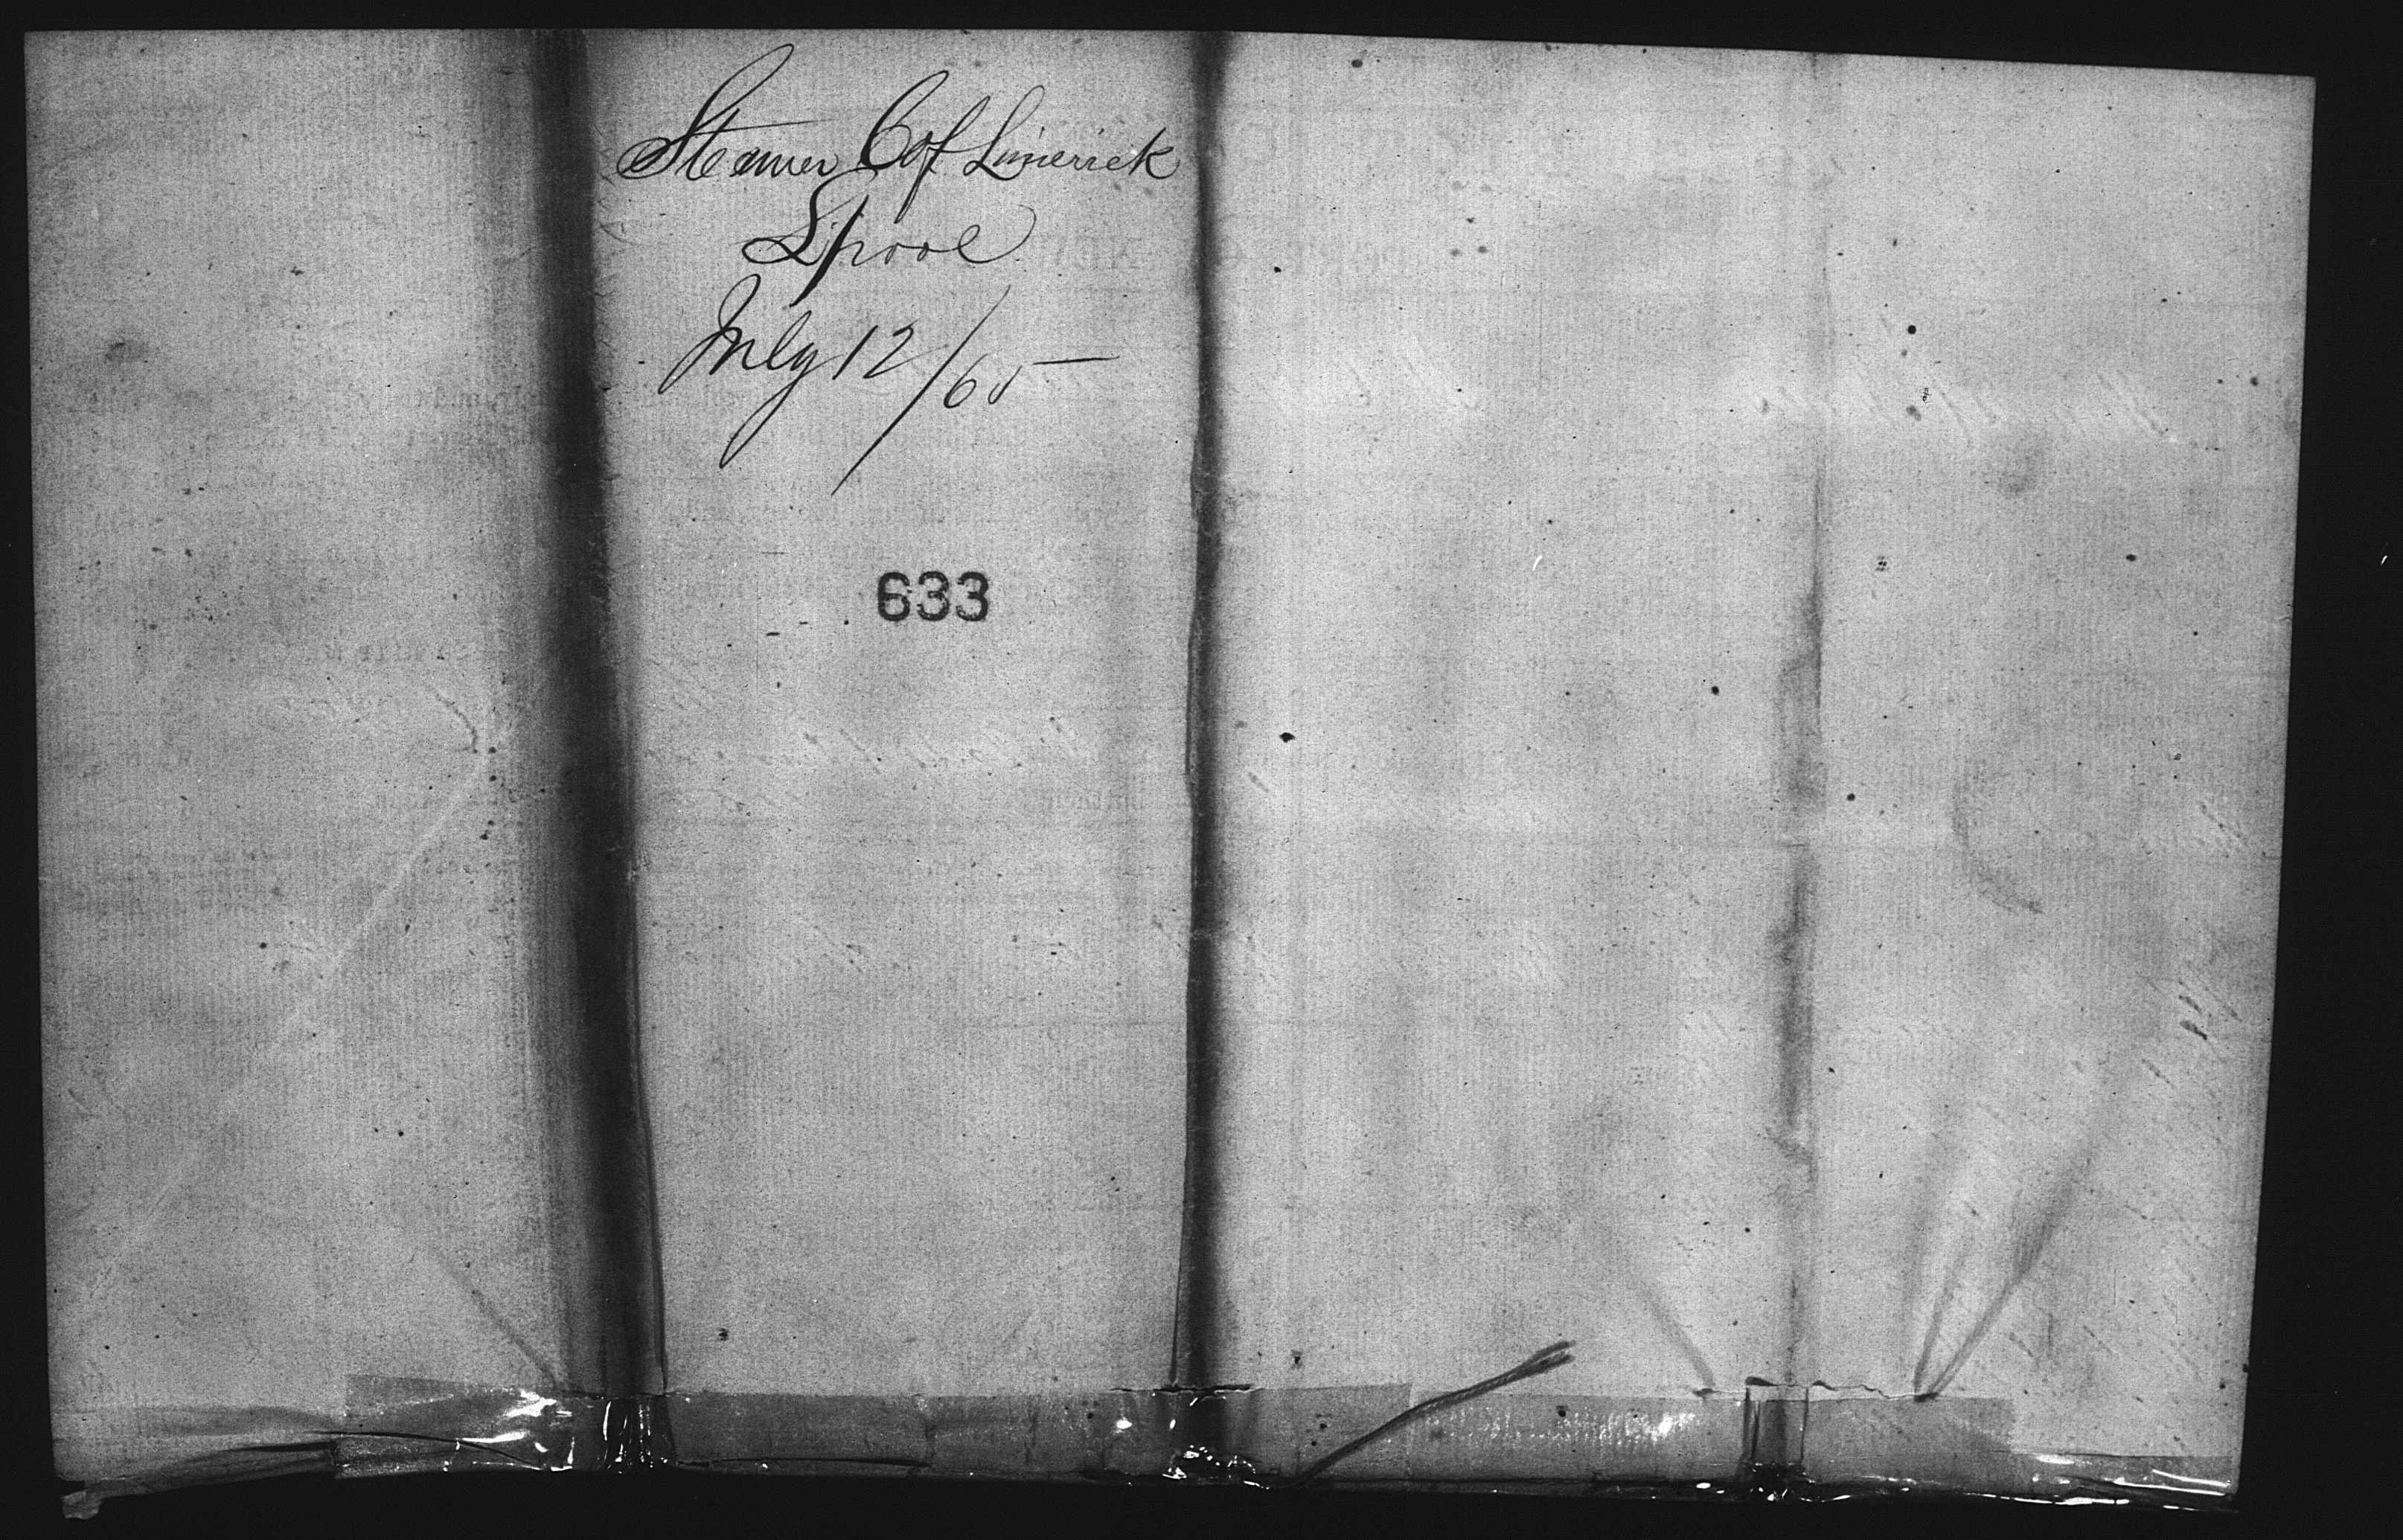 Steamer C of Limerick
L'pool
July 12/65
633